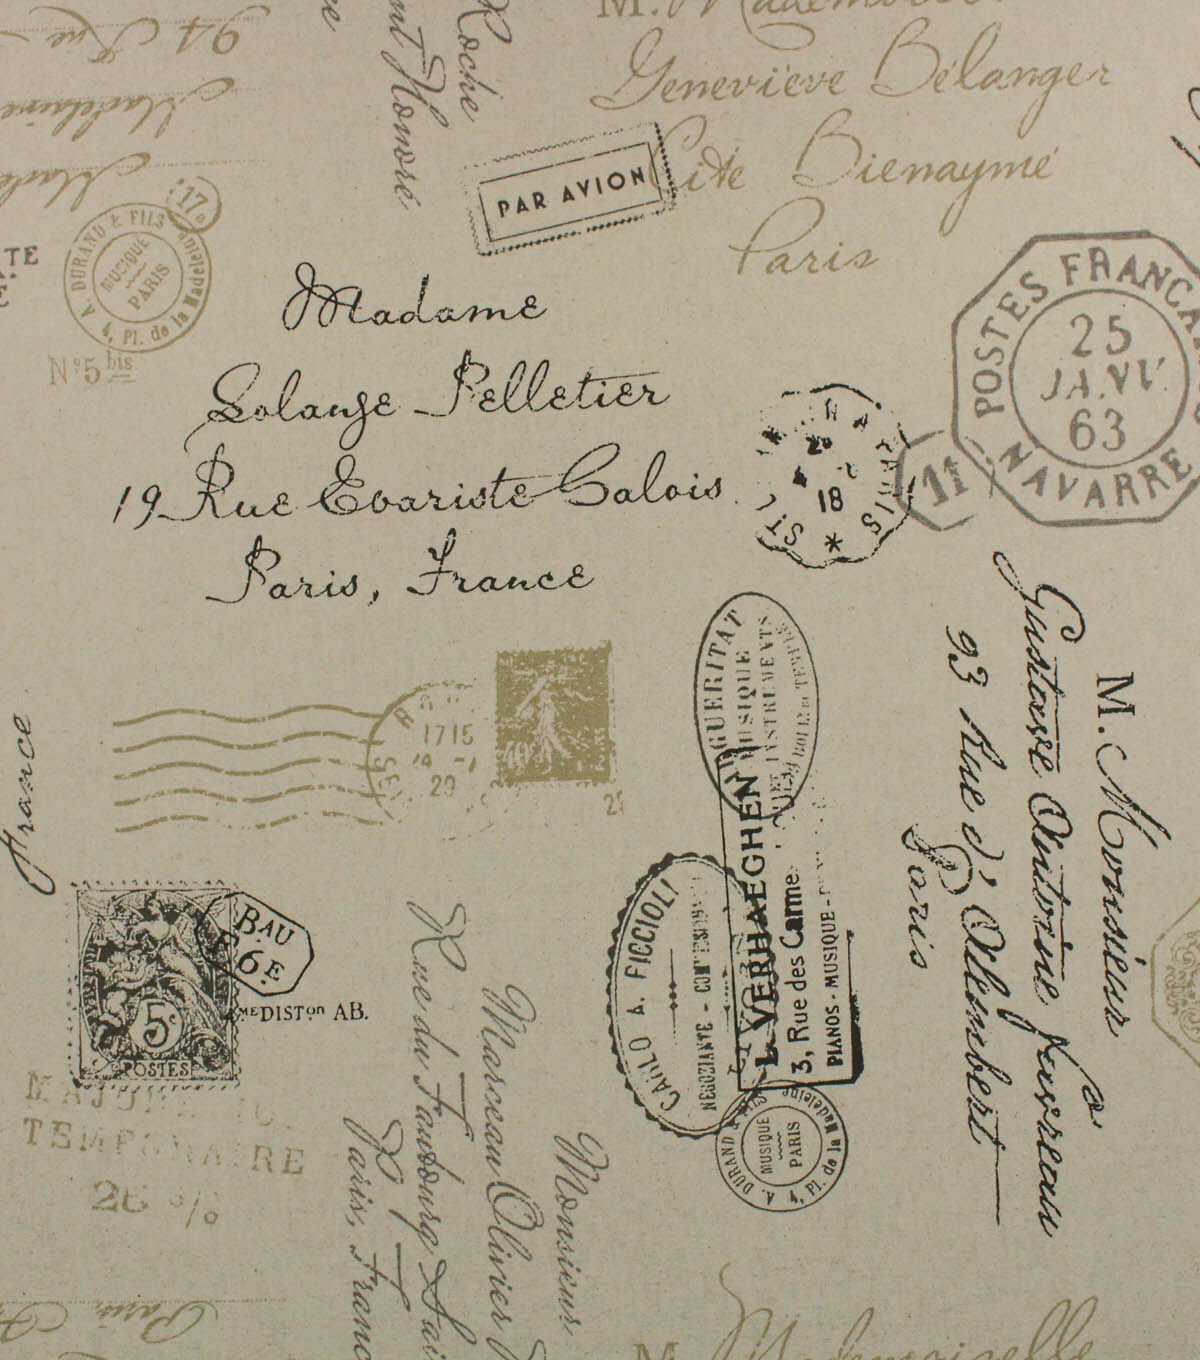 M. Mademoiselle
Geneviève Bélanger
Cité Bienaymé
Paris
94 Rue
Madelaine
Roche
nt Honoré
PAR AVION
17e
A. DURAND & FILS
MUSIQUE
PARIS
4, Pl. de la Madeleine
N°5 bis
TE
Madame
Solange Pelletier
19 Rue Evariste Galois
Paris, France
POSTES FRANCAI
25
JANV.
63
NAVARRE
11
18
ST
1715
29
40
France
M. Monsieur
Gustave Antoine Favreau
93 Rue d'Alembert
Paris
GUERITAT
MUSIQUE
INSTRUMENTS
L. VERHAEGHEN
3, Rue des Carme
PIANOS - MUSIQUE -
CARLO A. FICCIOLI
NEGOZIANTE -
A. DURAND &
MUSIQUE
PARIS
4, Pl. de la Madeleine
BAU
6E.
5c
POSTES
MEDISTon AB.
TEMPORAIRE
Monsieur
Marceau Olivier
Rue du Faubourg Sai
Paris, Franc
Paris
Mademoiselle